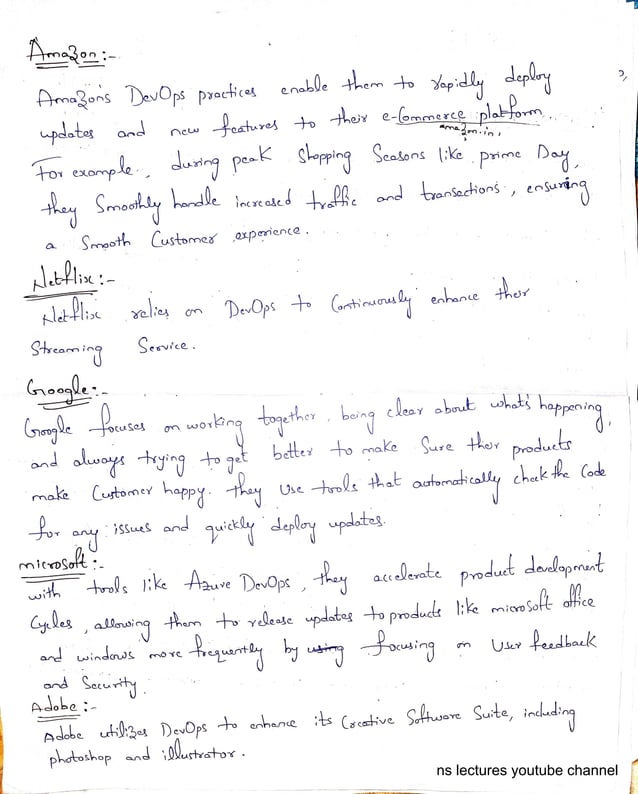 Amazon :-
Amazon's DevOps practices enable them to rapidly deploy
updates and new features to their e-Commerce platform.
amazon.in,
For example, during peak Shopping Seasons like prime Day,
they Smoothly handle increased traffic and transactions, ensuring
a Smooth Customer experience.
Netflix :-
Netflix relies on DevOps to Continuously enhance their
Streaming Service.
Google :-
Google focuses on working together, being clear about what's happening,
and always trying to get better to make Sure their products
make Customer happy. they Use tools that automatically check the Code
for any issues and quickly deploy updates.
microsoft :-
with tools like Azure DevOps, they accelerate product development
Cycles, allowing them to release updates to products like microsoft office
and windows more frequently by using focusing on User feedback
and Security.
Adobe :-
Adobe utilizes DevOps to enhance its Creative Software Suite, including
photoshop and illustrator.
ns lectures youtube channel